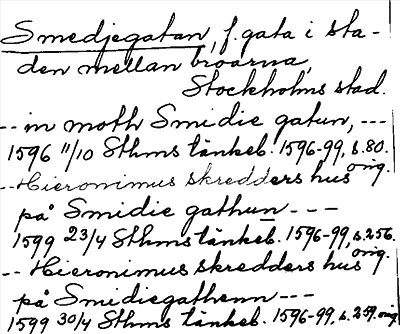 Smedjegatan, f. gata i sta-
den mellan broarna,
Stockholms stad.
-- in moth Smidie gatun, ---
1596 11/10 Sthms tänkeb. 1596-99, s. 80.
orig.
-- Hieronimus skredders hus
på Smidie gathun ---
1599 23/4 Sthms tänkeb. 1596-99, s. 256.
orig.
-- Hieronimus skredders hus
på Smidiegathenn ---
1599 30/4 Sthms tänkeb. 1596-99, s. 259. orig.